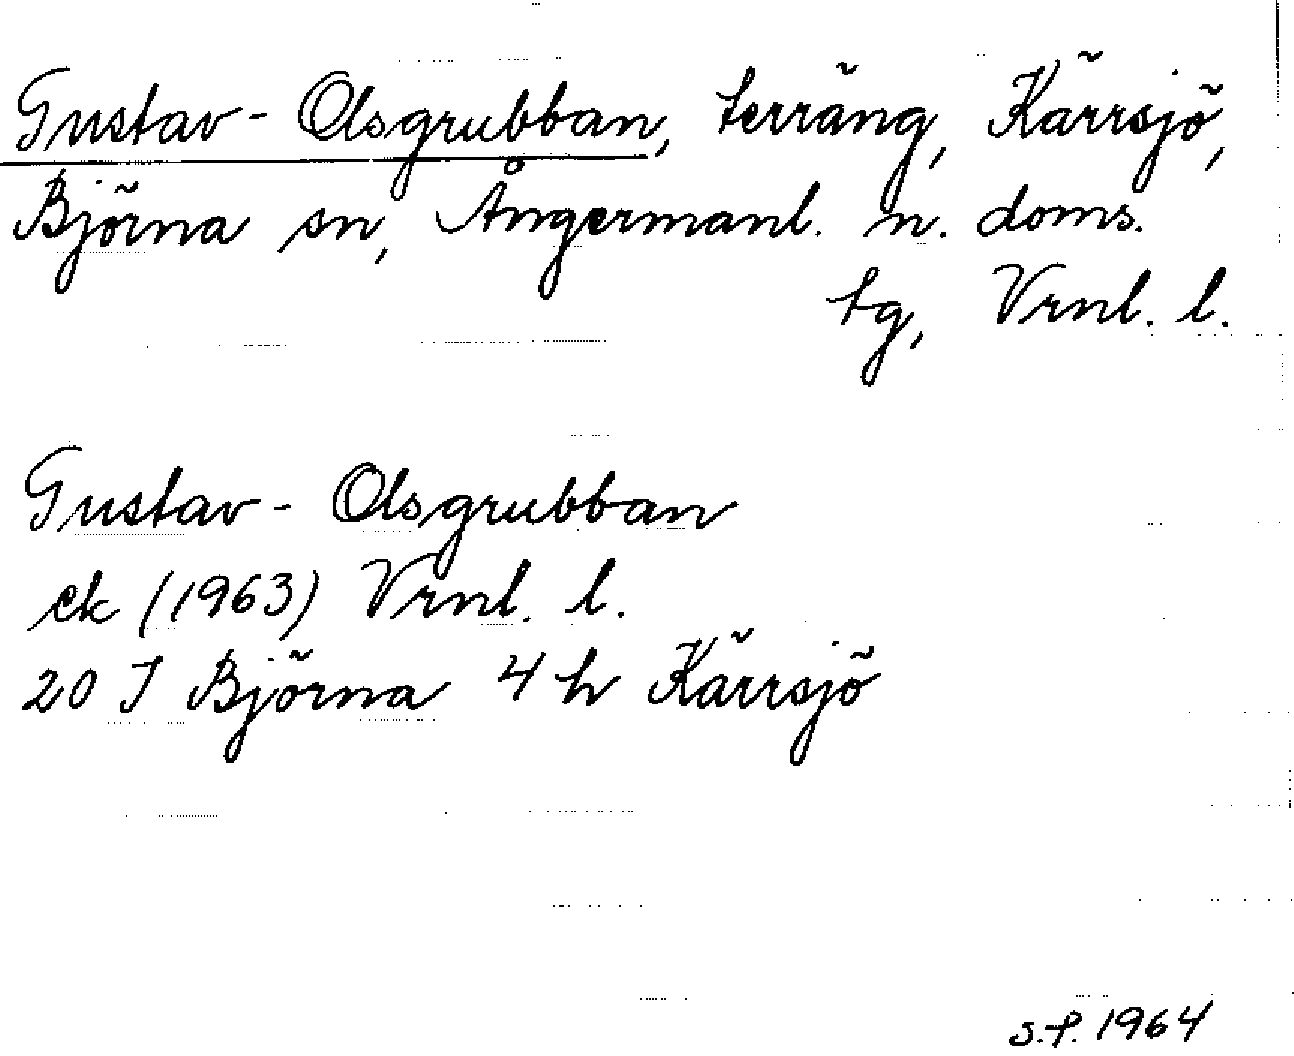 Gustav-Olsgrubban, terräng, Kärrsjö,
Björna sn, Ångermanl. n. doms.
tg, Vrnl. l.
Gustav-Olsgrubban
ek (1963) Vrnl. l.
20 I Björna 4 h Kärrsjö
s.f. 1964